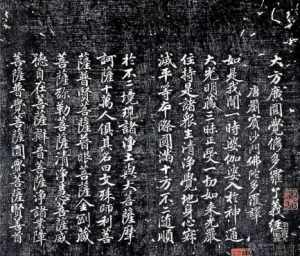 大方廣圓覺修多羅了義經
唐罽賓沙門佛陀多羅譯
如是我聞一時婆伽婆入於神通
大光明藏三昧正受一切如來光嚴
住持是諸衆生清淨覺地身心寂
滅平等本際圓滿十方不二隨順
於不二境現諸淨土與大菩薩摩
訶薩十萬人俱其名曰文殊師利菩
薩普賢菩薩普眼菩薩金剛藏
菩薩彌勒菩薩清淨慧菩薩威
德自在菩薩辯音菩薩淨諸業障
菩薩普覺菩薩圓覺菩薩賢善首